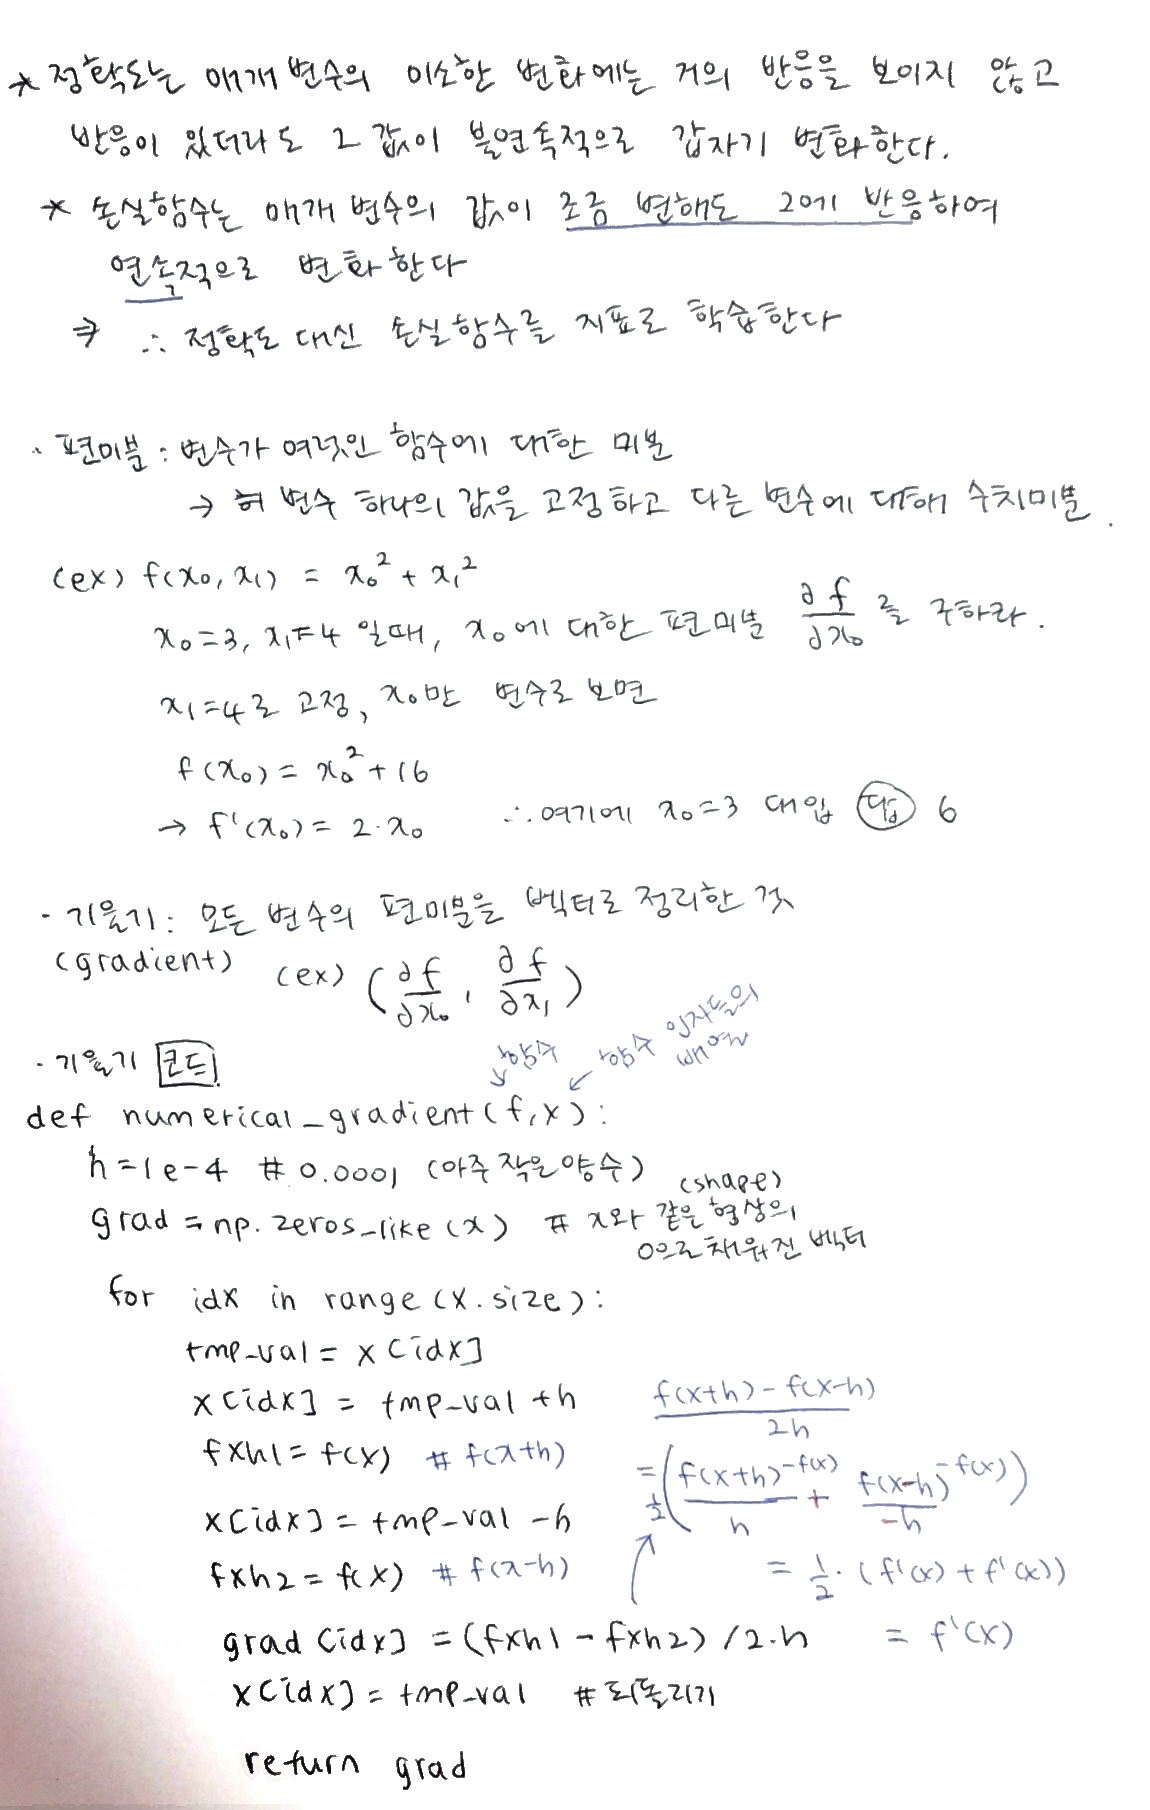 * 정확도는 매개 변수의 미소한 변화에는 거의 반응을 보이지 않고
반응이 있더라도 그 값이 불연속적으로 갑자기 변화한다.
* 손실함수는 매개 변수의 값이 조금 변해도 그에 반응하여
연속적으로 변화한다
⇒ ∴ 정확도 대신 손실함수를 지표로 학습한다
· 편미분 : 변수가 여럿인 함수에 대한 미분
→ 변수 하나의 값을 고정하고 다른 변수에 대해 수치미분.
(ex) f(x₀, x₁) = x₀² + x₁²
x₀=3, x₁=4 일때, x₀에 대한 편미분 ∂f/∂x₀ 를 구하라.
x₁=4로 고정, x₀만 변수로 보면
f(x₀) = x₀² + 16
→ f'(x₀) = 2·x₀ ∴ 여기에 x₀=3 대입 답 6
· 기울기 : 모든 변수의 편미분을 벡터로 정리한 것
(gradient) (ex) (∂f/∂x₀, ∂f/∂x₁)
함수 함수 인자들의
배열
· 기울기 코드
def numerical_gradient(f,x):
h=1e-4 # 0.0001 (아주 작은 양수)
(shape)
grad = np.zeros_like(x) # x와 같은 형상의
0으로 채워진 벡터
for idx in range(x.size):
tmp_val = x[idx]
x[idx] = tmp_val +h f(x+h)-f(x-h)/2h
fxh1 = f(x) # f(x+h) = ½(f(x+h)-f(x)/h + f(x-h)-f(x)/-h)
x[idx] = tmp_val -h
fxh2 = f(x) # f(x-h) = ½·(f'(x)+f'(x))
grad[idx] = (fxh1 - fxh2) /2·h = f'(x)
x[idx] = tmp_val # 되돌리기
return grad